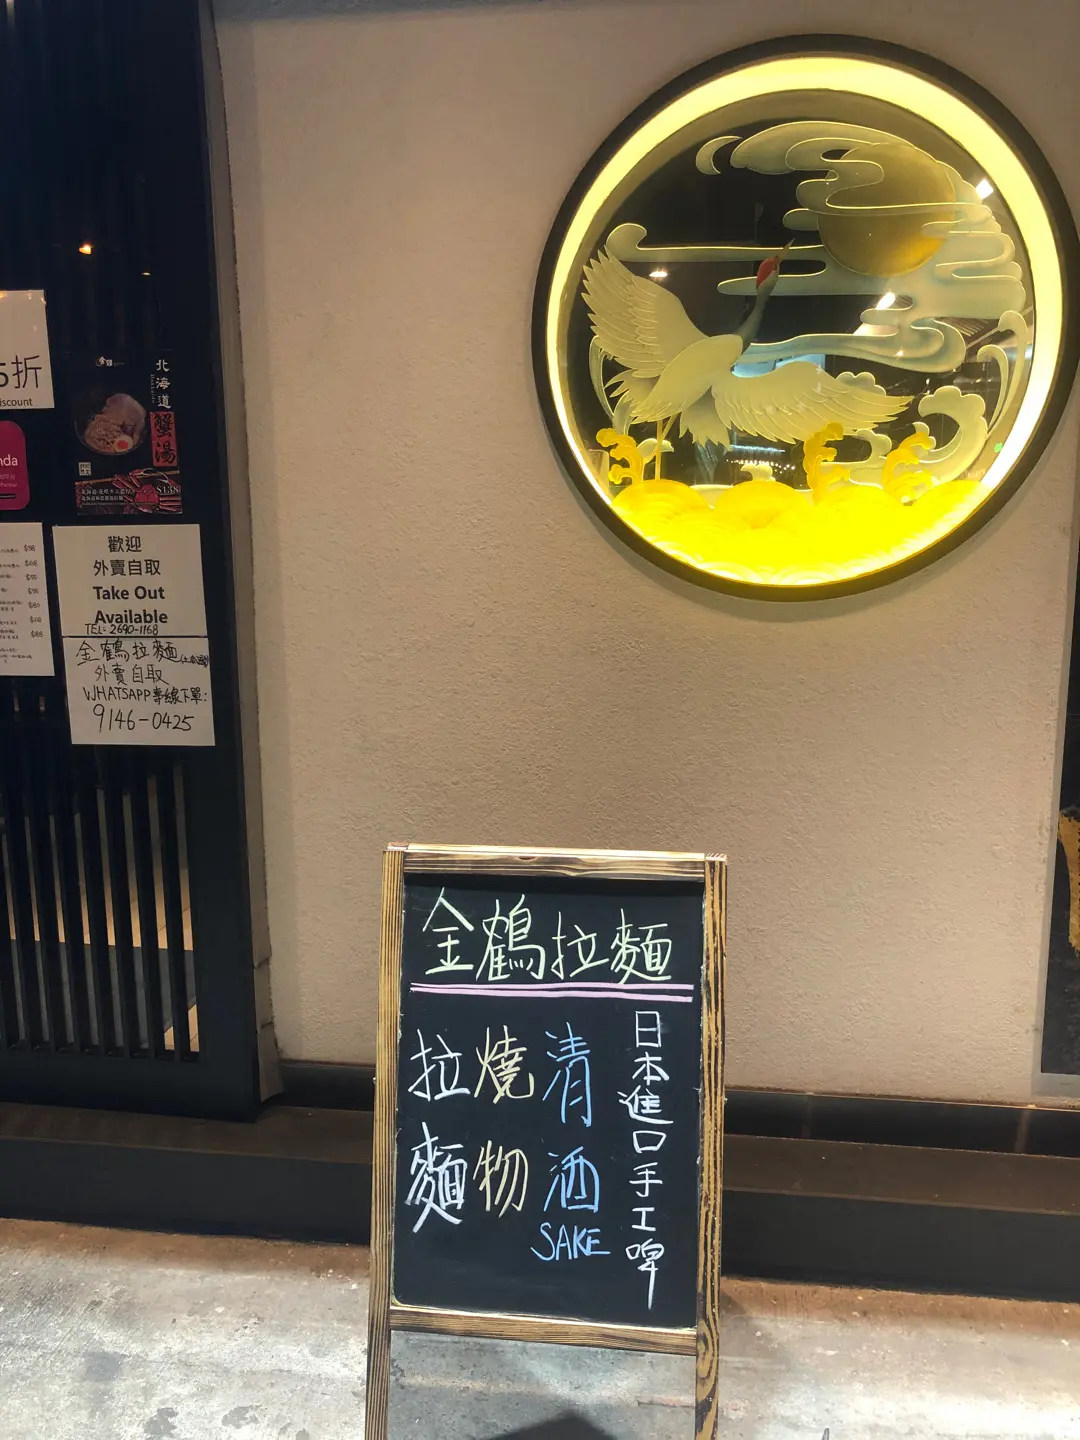 5折
iscount
nda
北海道
Hokkaido
蟹湯
$138
$98
歡迎
外賣自取
Take Out
Available
TEL: 2690-1168
金鶴拉麵
外賣自取
WHATSAPP專線下單:
9146-0425
金鶴拉麵
拉麵
燒物
清酒
SAKE
日本進口手工啤